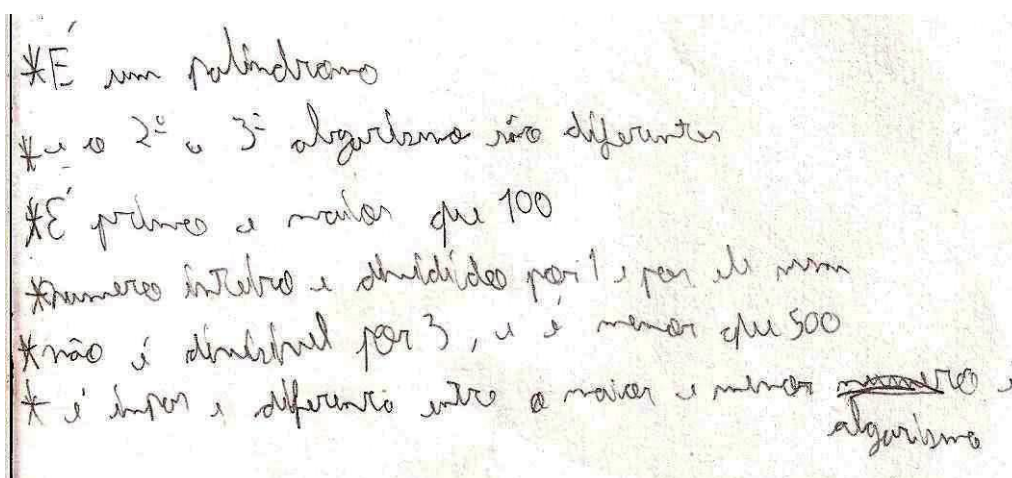 *É um palíndromo
*e o 2º e 3º algarismo são diferentes
*É primo e maior que 100
*numero inteiro e dividido por 1 e por ele mesm
*não é divisível por 3, e é menor que 500
* é ímpar e diferença entre o maior e menor é
algarismo